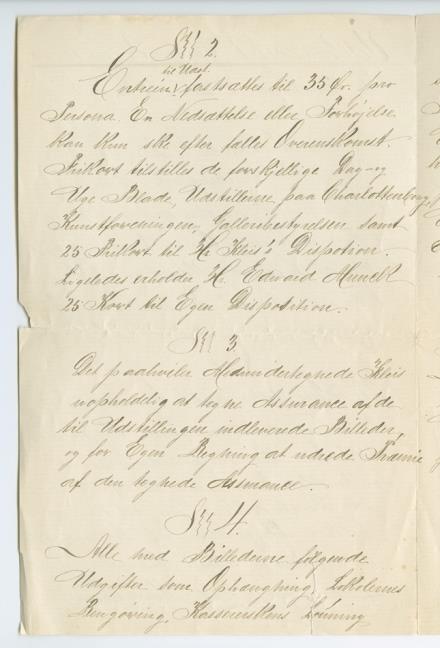 §§ 2.
til Udst.
Entréen fastsættes til 35 Ør. pro
Persona. En Nedsættelse eller Forhøjelse
kan kun ske efter fælles Overenskomst.
Frikort tilstilles de forskjellige Dag- og
Uge Blade, Udstillerne paa Charlottenborg,
Kunstforeningen, Galleribestyrelsen samt
25 Frikort til Hr Kleis's Dispotion.
Ligeledes erholder Hr. Edward Munch
25 Kort til Egen Disposition.
§§ 3
Det paahviler Medundertegnede Kleis
uopholdelig at tegne Assurance af de
til Udstillingen indleverede Billeder,
og for Egen Regning at udrede Præmie
af den tegnede Assurance.
§§ 4.
Alle med Billederne følgende
Udgifter som Ophængning, Lokalernes
Rengøring, Kassererskens Lønning